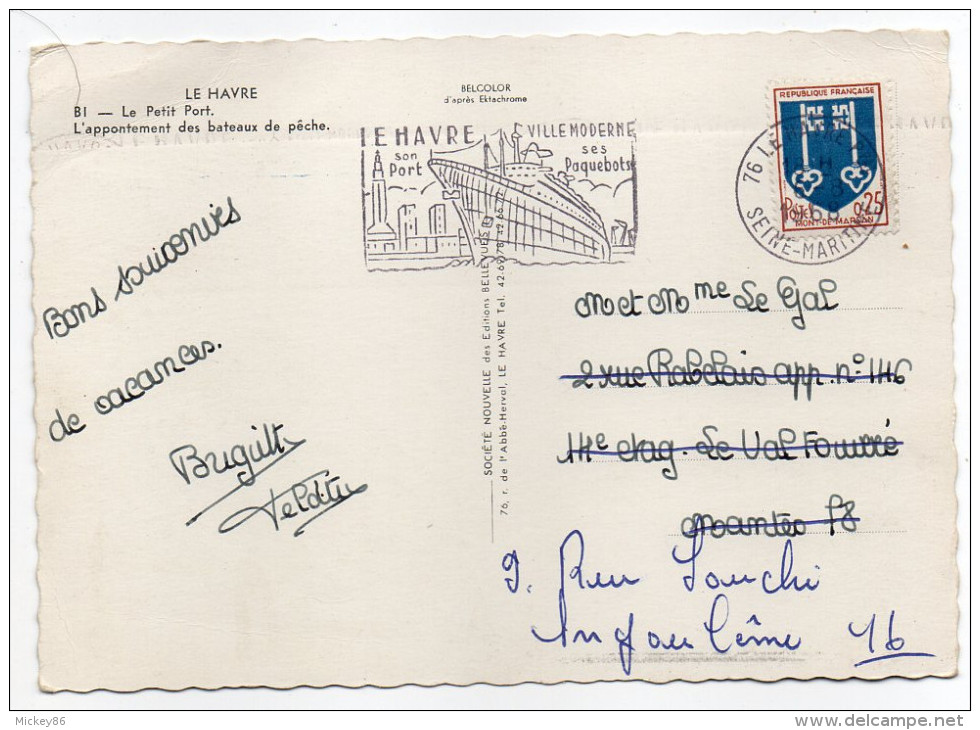 LE HAVRE
BI — Le Petit Port.
L'appontement des bateaux de pêche.
BELCOLOR
d'après Ektachrome
LE HAVRE
son
Port
VILLE MODERNE
ses
Paquebots
REPUBLIQUE FRANÇAISE
POSTES
0,25
MONT-DE-MARSAN
76 LE HAVRE
8
1968
SEINE-MARITIME
Bons souvenirs
de vacances.
Brigitte
SOCIÉTÉ NOUVELLE des Editions BELLEVUES
76, r. de l'Abbé-Herval, LE HAVRE Tel. 42.69.78/42.66.72
M et Mme Le Gal
2 rue Rabelais app. n° 1146
11e etag. Le Val Fourré
Mantes 78
9. Rue
Angoulême 16
Mickey86
www.delcampe.net